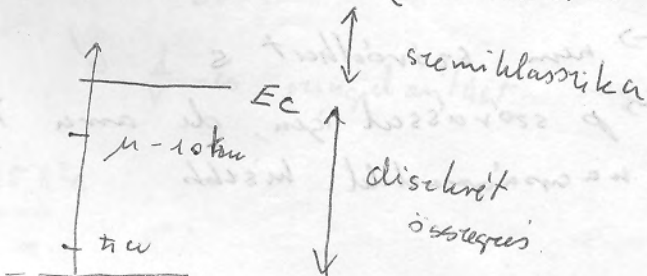 szemiklasszika
E_C
μ - 10ħω
diszkrét
összegzés
ħω